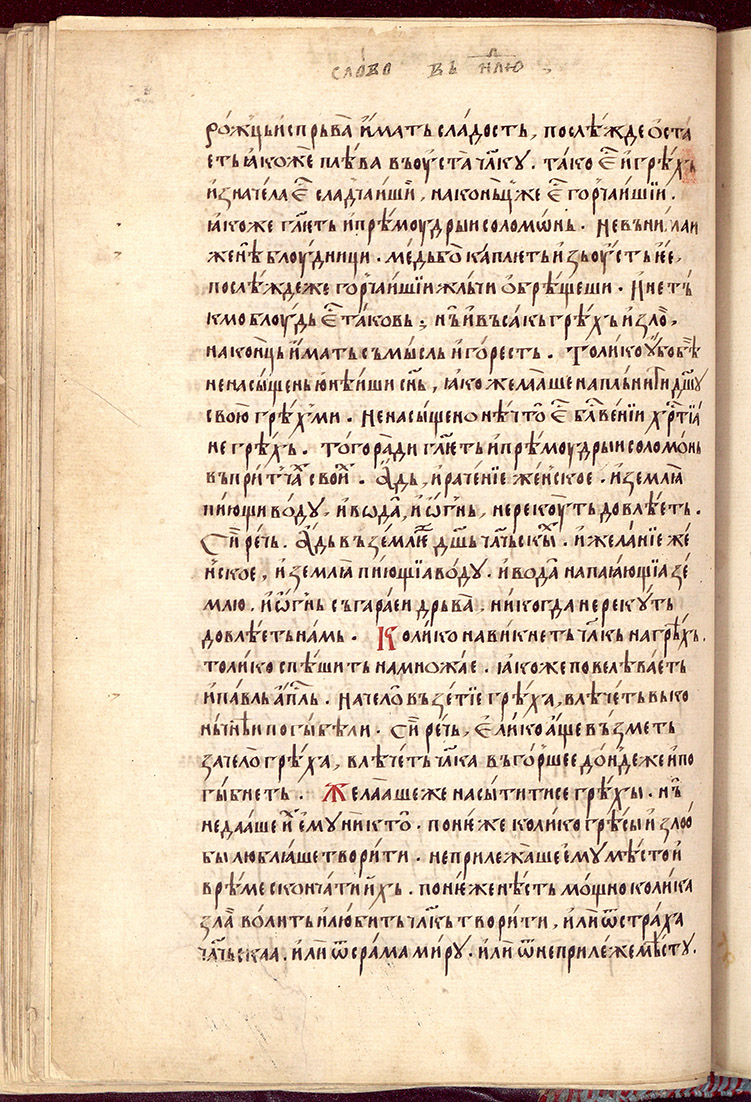 слово въ нлю
рожци испрьва имать сладость, послѣжде оста
еть ꙗкоже плѣва въ оуста члку. тако ѥс҇ и грѣхь
изначела ѥс҇ сладчаиши, наконць же ѥс҇ горчаишїи.
ꙗкоже глѥть и прѣмоудрыи соломѡнь. не вънимаи
женѣ блоудници. медь бо каплють изь оусть ѥѥ,
послѣжде же горчаишїи жльчи обрѣщеши. и нѣ тъ
кмо блоудь ѥс҇ таковь; нь и въсакь грѣхъ и зло,
наконць имать съмысль и горесть. толико оубо бѣ
ненасыщень юнѣиши снь, ꙗко желааше наплънити дшу
свою грѣхми. ненасыщено нѣчто ѥс҇ блвенїи хрстїа
не грѣхъ. того ради глѥть и прѣмоудрыи соломонь
въ притчах свои. адь, и раченїе женское. и землꙗ
пиющи воду, и вода, и ѡгнь, не рекоуть довлѣеть.
сирѣчь. адь въ землѥ дшь чльскых. и желанїе же
нское, и землꙗ пиющїа воду. и вода напаꙗющїа зе
млю. и ѡгнь съгараеи дрьва. никогда не рекуть
довлѣеть намь. Колико навикнеть члкь на грѣхь.
толико спѣшить на множае. ꙗкоже повелѣваеть
и павль апль. начело възетїе грѣха, влѣчеть въ ко
ньчнѣи погыбѣли. сирѣчь, ѥлико аще възметь
зачело грѣха, влѣчеть члка въ горшее дондеже и по
гыбнеть. Желааше же насытитисе грѣхы. нь
не дааше ѥму никто. понѥже колико грѣсы и злоо
бы люблꙗше творити. не прилежааше ѥму мѣсто и
врѣме скончати ихъ. понѥже нѣсть мощно колика
зла волить и любить члкь творити, или ѿ страха
чльскаа. или ѿ срама миру. или ѿ неприлеже мѣсту.